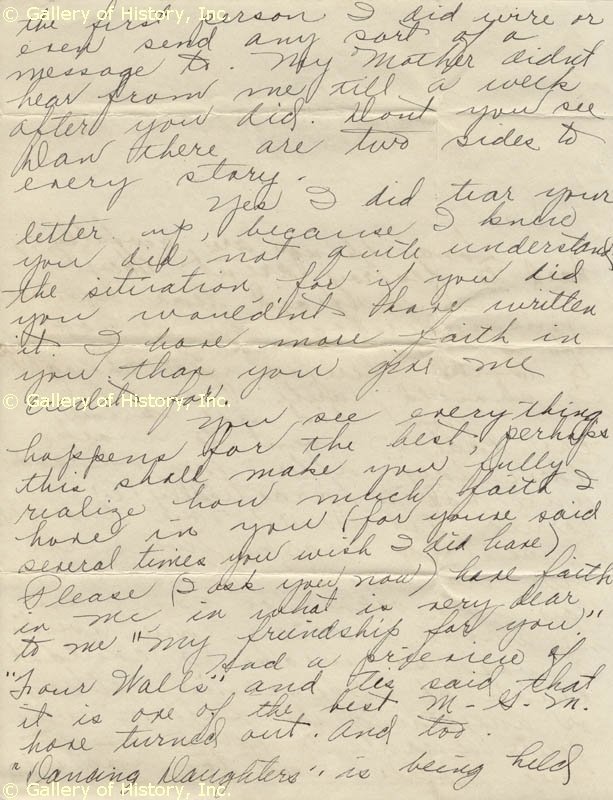 © Gallery of History, Inc.
the first person I did wire or
even send any sort of a
message to. My Mother didnt
hear from me till a week
after you did. Dont you see
Dan there are two sides to
every story.
Yes I did tear your
letter up, because I knew
you did not quite understand
the situation, for if you did
you wouldn't have written
it. I have more faith in
you than you give me
credit for.
© Gallery of History, Inc.
You see everything
happens for the best, perhaps
this shall make you fully
rialize how much faith I
have in you (for youve said
several times you wish I did have)
Please (I ask you now) have faith
in me, in what is very dear
to me "My friendship for you."
Had a prieview of
"Four Walls" and tis said that
it is one of the best M-G.M.
have turned out. And too.
"Dancing Daughters" is being held
© Gallery of History, Inc.